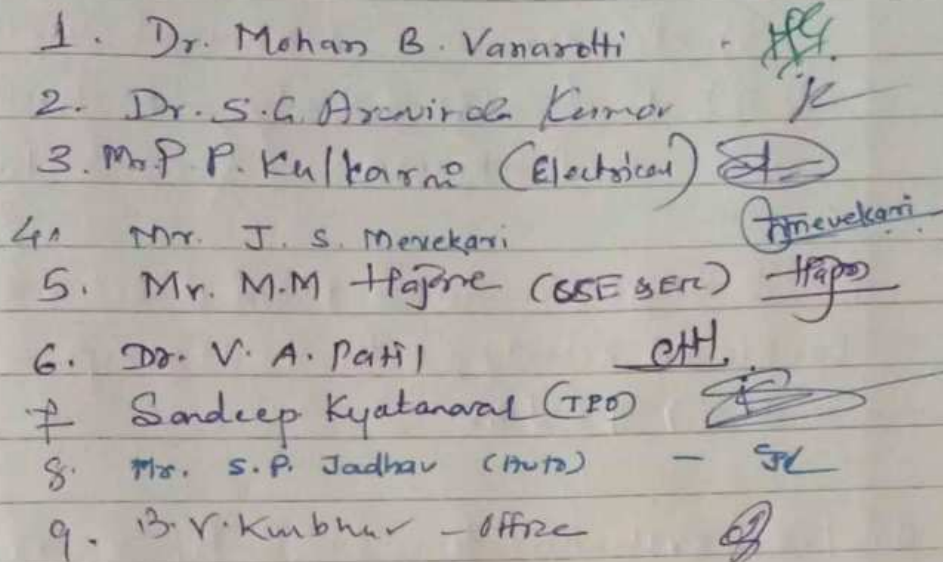 1. Dr. Mohan B. Vanarotti
2. Dr. S.G. Aravinda Kumar
3. Mr. P P. Kulkarni (Electrical)
4. Mr. J. S. Mevekari Jmevekari
5. Mr. M.M Hajare
6. Dr. V. A. Patil
7 Sandeep Kyatanavar (TPO)
8. Mr. S.P. Jadhav (Auto) -
9. B.V. Kumbhar - Office